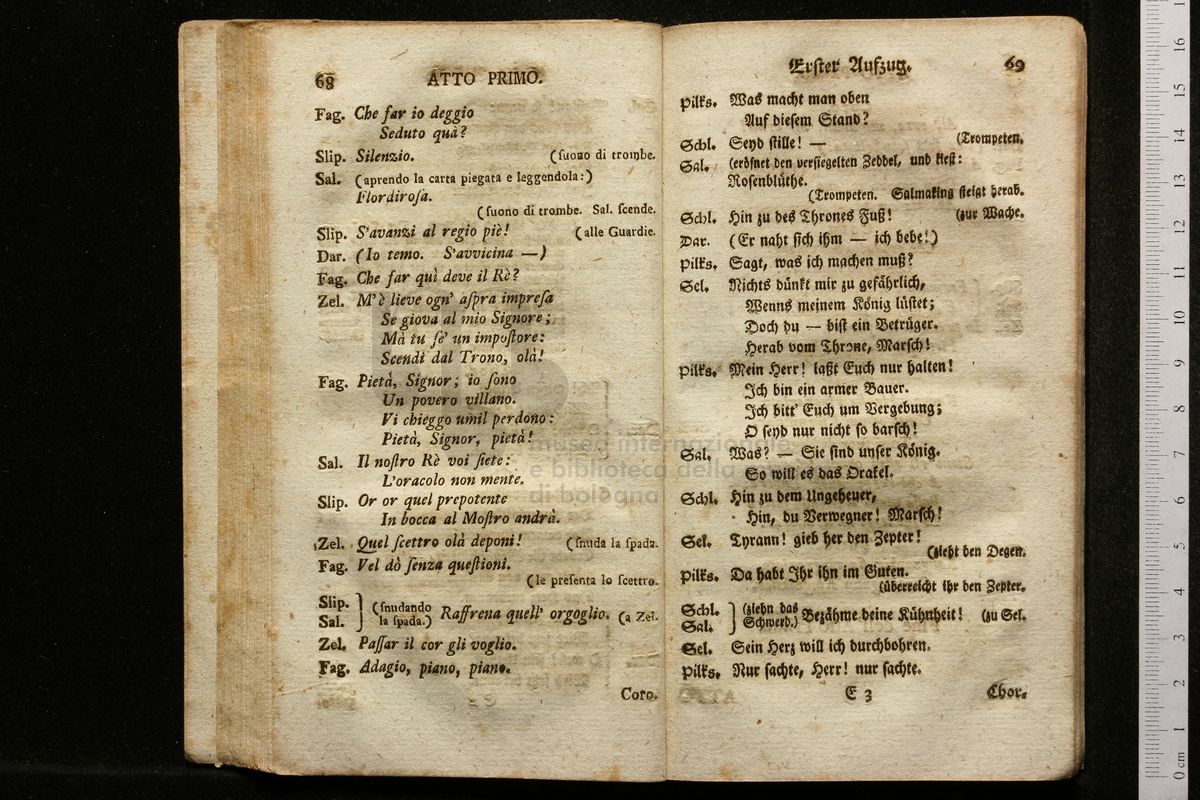 68 ATTO PRIMO.
Fag. Che far io deggio
Seduto quà?
Slip. Silenzio. (ſuono di trombe.
Sal. (aprendo la carta piegata e leggendola:)
Flordiroſa.
(ſuono di trombe. Sal. ſcende.
Slip. S'avanzi al regio piè! (alle Guardie.
Dar. (Io temo. S'avvicina —)
Fag. Che far quì deve il Rè?
Zel. M'è lieve ogn' aſpra impreſa
Se giova al mio Signore;
Mà tu ſe' un impoſtore:
Scendi dal Trono, olà!
Fag. Pietà, Signor; io ſono
Un povero villano.
Vi chieggo umil perdono:
Pietà, Signor, pietà!
Sal. Il noſtro Rè voi ſiete:
L'oracolo non mente.
Slip. Or or quel prepotente
In bocca al Moſtro andrà.
Zel. Quel ſcettro olà deponi! (ſnuda la ſpada.
Fag. Vel dò ſenza queſtioni.
(le preſenta lo ſcettro.
Slip. Sal. } (ſnudando la ſpada.) Raffrena quell' orgoglio. (a Zel.
Zel. Paſſar il cor gli voglio.
Fag. Adagio, piano, piano.
Coro.
Erſter Aufzug. 69
Pilks. Was macht man oben
Auf dieſem Stand?
Schl. Seyd ſtille! — (Trompeten.
Sal. (eröfnet den verſiegelten Zeddel, und lieſt:
Roſenblüthe.
(Trompeten. Salmaking ſteigt herab.
Schl. Hin zu des Thrones Fuß! (zur Wache.
Dar. (Er naht ſich ihm — ich bebe!)
Pilks. Sagt, was ich machen muß?
Sel. Nichts dünkt mir zu gefährlich,
Wenns meinem König lüſtet;
Doch du — biſt ein Betrüger.
Herab vom Throne, Marſch!
Pilks. Mein Herr! laßt Euch nur halten!
Ich bin ein armer Bauer.
Ich bitt' Euch um Vergebung;
O ſeyd nur nicht ſo barſch!
Sal. Was? — Sie ſind unſer König.
So will es das Orakel.
Schl. Hin zu dem Ungeheuer,
Hin, du Verwegner! Marſch!
Sel. Tyrann! gieb her den Zepter!
(zieht den Degen.
Pilks. Da habt Ihr ihn im Guten.
(überreicht ihr den Zepter.
Schl. Sal. } (ziehn das Schwerd.) Bezähme deine Kühnheit! (zu Sel.
Sel. Sein Herz will ich durchbohren.
Pilks. Nur ſachte, Herr! nur ſachte.
E 3 Chor.
museo internazionale
e biblioteca della
di bologna